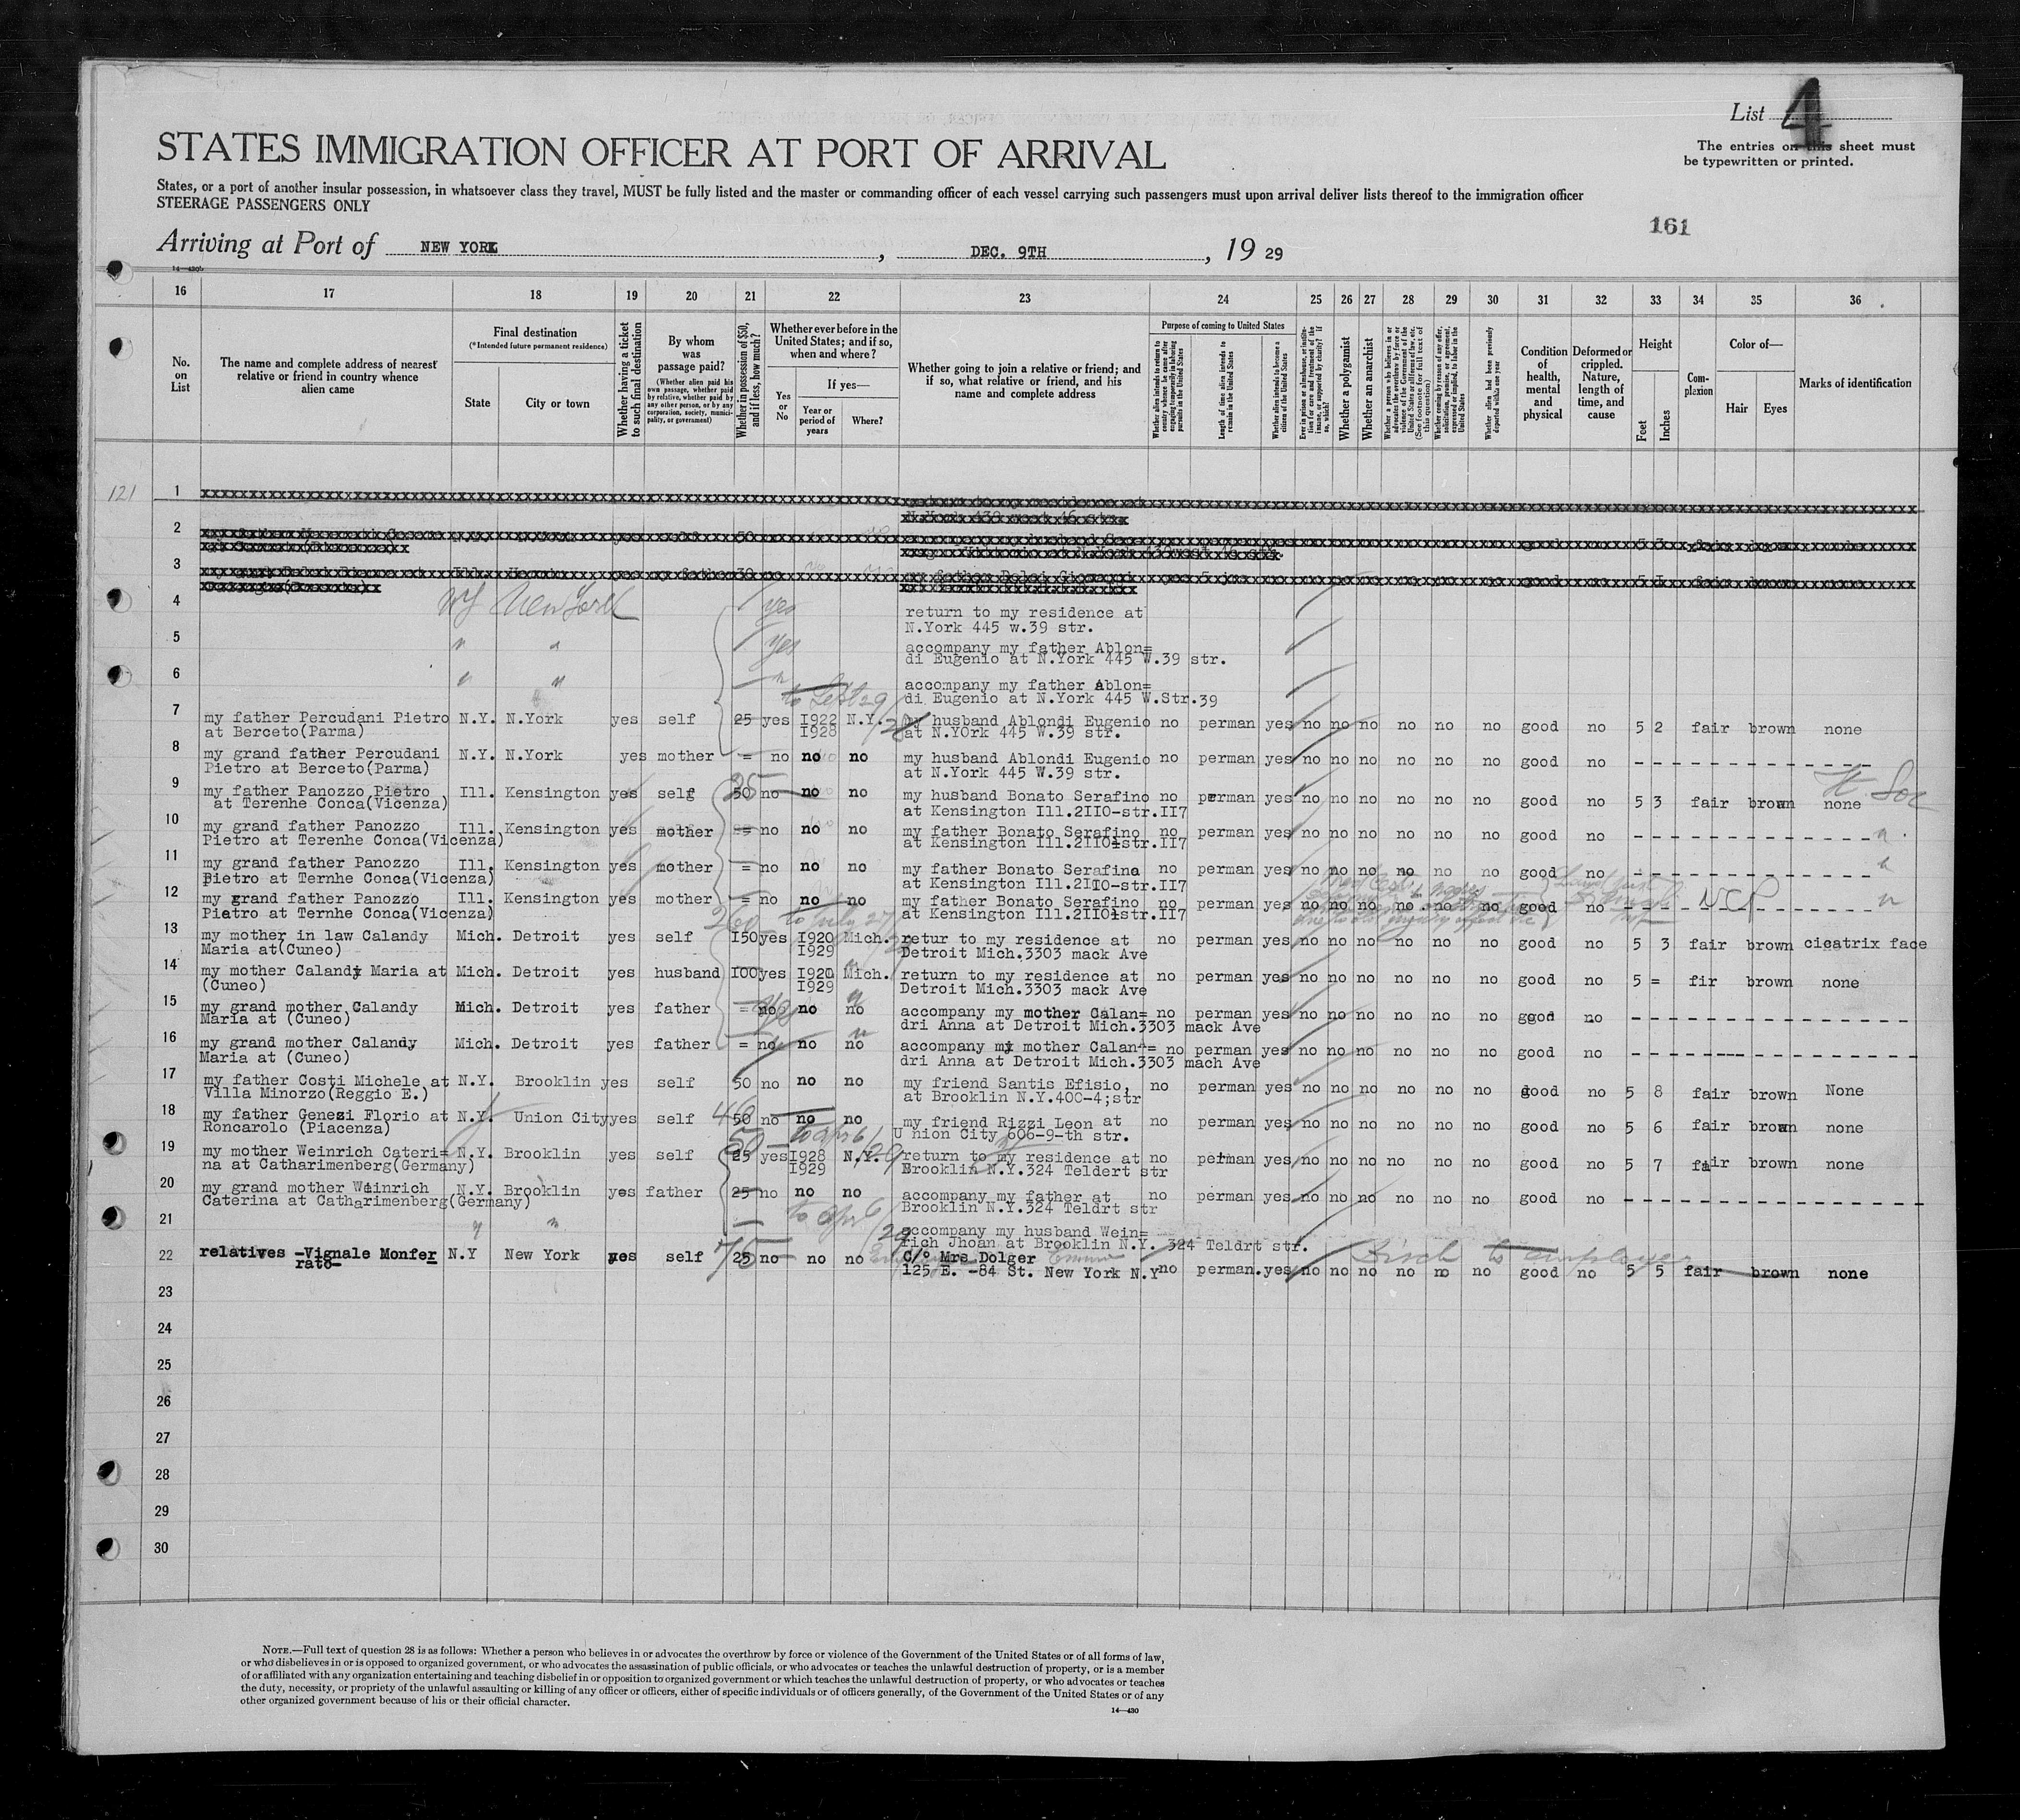 List 4
STATES IMMIGRATION OFFICER AT PORT OF ARRIVAL
The entries on this sheet must
be typewritten or printed.
States, or a port of another insular possession, in whatsoever class they travel, MUST be fully listed and the master or commanding officer of each vessel carrying such passengers must upon arrival deliver lists thereof to the immigration officer
STEERAGE PASSENGERS ONLY
161
Arriving at Port of NEW YORK , DEC. 9TH , 19 29
14—430
16 17 18 19 20 21 22 23 24 25 26 27 28 29 30 31 32 33 34 35 36
No. on List
The name and complete address of nearest relative or friend in country whence alien came
Final destination
(*Intended future permanent residence)
State
City or town
Whether having a ticket to such final destination
By whom was passage paid?
(Whether alien paid his own passage, whether paid by relative, whether paid by any other person, or by any corporation, society, municipality, or government)
Whether in possession of $50, and if less, how much?
Whether ever before in the United States; and if so, when and where?
Yes or No
If yes—
Year or period of years
Where?
Whether going to join a relative or friend; and if so, what relative or friend, and his name and complete address
Purpose of coming to United States
Whether alien intends to return to country whence he came after engaging temporarily in laboring pursuits in the United States
Length of time alien intends to remain in the United States
Whether alien intends to become a citizen of the United States
Ever in prison or almshouse, or institution for care and treatment of the insane, or supported by charity? If so, which?
Whether a polygamist
Whether an anarchist
Whether coming by reason of any offer, solicitation, promise, or agreement, expressed or implied, to labor in the United States
Whether or alien had been previously deported within one year
Condition of health, mental and physical
Deformed or crippled. Nature, length of time, and cause
Height
Feet
Inches
Complexion
Color of—
Hair
Eyes
Marks of identification
121
1
2
3
4 NY New York yes return to my residence at
N.York 445 w.39 str.
5 " " yes accompany my father Ablon=
di Eugenio at N.York 445 W.39 str.
6 " " " accompany my father Ablon=
di Eugenio at N.York 445 W.Str.39
7 my father Percudani Pietro N.Y. N.York yes self 25 yes I922 N.Y. my husband Ablondi Eugenio no perman yes no no no no no no good no 5 2 fair brown none
at Berceto(Parma) I928 at N.YOrk 445 W.39 str.
8 my grand father Percudani N.Y. N.York yes mother = no no no my husband Ablondi Eugenio no perman yes no no no no no no good no
Pietro at Berceto(Parma) at N.York 445 W.39 str.
9 my father Panozzo Pietro Ill. Kensington yes self 50 no no no my husband Bonato Serafino no perman yes no no no no no no good no 5 3 fair brown none
at Terenhe Conca(Vicenza) at Kensington Ill.2II0-str.II7
10 my grand father Panozzo Ill. Kensington yes mother = no no no my father Bonato Serafino no perman yes no no no no no no good no
Pietro at Terenhe Conca(Vicenza) at Kensington Ill.2II0-str.II7
11 my grand father Panozzo Ill. Kensington yes mother = no no no my father Bonato Serafino no perman yes no no no no no no good no
Pietro at Ternhe Conca(Vicenza) at Kensington Ill.2II0-str.II7
12 my grand father Panozzo Ill. Kensington yes mother = no no no my father Bonato Serafino no perman yes no no no no no no good no
Pietro at Ternhe Conca(Vicenza) at Kensington Ill.2II0-str.II7
13 my mother in law Calandy Mich. Detroit yes self I50 yes I920 Mich. retur to my residence at no perman yes no no no no no no good no 5 3 fair brown cicatrix face
Maria at(Cuneo) I929 Detroit Mich.3303 mack Ave
14 my mother Calandy Maria at Mich. Detroit yes husband I00 yes I920 Mich. return to my residence at no perman yes no no no no no no good no 5 = fir brown none
(Cuneo) I929 Detroit Mich.3303 mack Ave
15 my grand mother Calandy Mich. Detroit yes father = no no no accompany my mother Calan= no perman yes no no no no no no good no
Maria at (Cuneo) dri Anna at Detroit Mich.3303 mack Ave
16 my grand mother Calandy Mich. Detroit yes father = no no no accompany my mother Calan= no perman yes no no no no no no good no
Maria at (Cuneo) dri Anna at Detroit Mich.3303 mach Ave
17 my father Costi Michele at N.Y. Brooklin yes self 50 no no no my friend Santis Efisio, no perman yes no no no no no no good no 5 8 fair brown None
Villa Minorzo(Reggio E.) at Brooklin N.Y.400-4;str
18 my father Genezi Florio at N.Y. Union City yes self 50 no no no my friend Rizzi Leon at no perman yes no no no no no no good no 5 6 fair brown none
Roncarolo (Piacenza) U nion City 606-9-th str.
19 my mother Weinrich Cateri= N.Y. Brooklin yes self 25 yes I928 N.Y. return to my residence at no perman yes no no no no no no good no 5 7 fair brown none
na at Catharimenberg(Germany) I929 Brooklin N.Y.324 Teldert str
20 my grand mother Weinrich N.Y. Brooklin yes father 25 no no no accompany my father at no perman yes no no no no no no good no
Caterina at Catharimenberg(Germany) Brooklin N.Y.324 Teldrt str
21 " " accompany my husband Wein=
rich Jhoan at Brooklin N.Y. 324 Teldrt str.
22 relatives -Vignale Monfer N.Y New York yes self 25 no no no C/o Mrs Dolger no perman. yes no no no no no no good no 5 5 fair brown none
rato- 125 E. -84 St. New York N.Y
23
24
25
26
27
28
29
30
NOTE.—Full text of question 28 is as follows: Whether a person who believes in or advocates the overthrow by force or violence of the Government of the United States or of all forms of law,
or who disbelieves in or is opposed to organized government, or who advocates the assassination of public officials, or who advocates or teaches the unlawful destruction of property, or is a member
of or affiliated with any organization entertaining and teaching disbelief in or opposition to organized government or which teaches the unlawful destruction of property, or who advocates or teaches
the duty, necessity, or propriety of the unlawful assaulting or killing of any officer or officers, either of specific individuals or of officers generally, of the Government of the United States or of any
other organized government because of his or their official character.
14—430